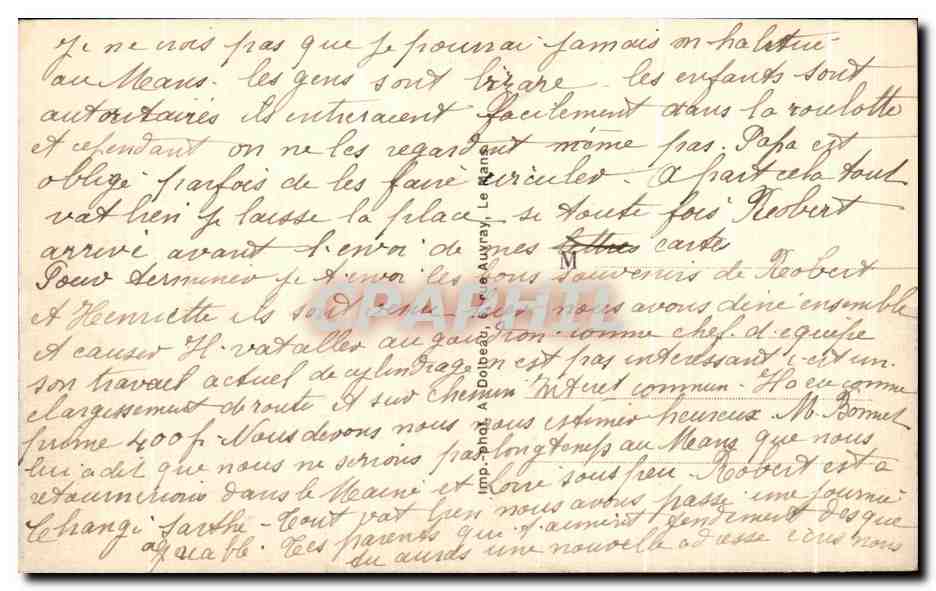 Je ne crois pas que je pourrai jamais m habitué
au Mans. les gens sont bizare les enfants sont
autoritaires ils entreraient facilement dans la roulotte
et cependant on ne les regardent même pas. Papa est
obligé parfois de les faire circuler. A part cela tout
vat bien je laisse la place si toute fois Robert
arrivé avant l'envoi de mes lettres cartes
M
Pour terminer je t'envoi les bons souvenirs de Robert
et Henriette ils sont venu nous avons diné ensemble
et causer H. vat aller au goudron comme chef d'equipe
son travail actuel de cylindrage n est pas interessant c'est un
elargissement de route et sur chemin interet commun. Ho eu comme
prime 400f. Nous devons nous nous estimer heureux M. Bonnet
lui a dit que nous ne serions pas longtemps au Mans que nous
retournerions dans le Maine et Loire sous peu. Robert est a
Changé Sarthe. Tout vat bien nous avons passé une journée
agréable. Tes parents qui t'aiment tendrement des que
tu auras une nouvelle adresse ecris nous
Imp.-phot. A. Dolbeau, 6, rue Auvray, Le Mans
CPAPHIL